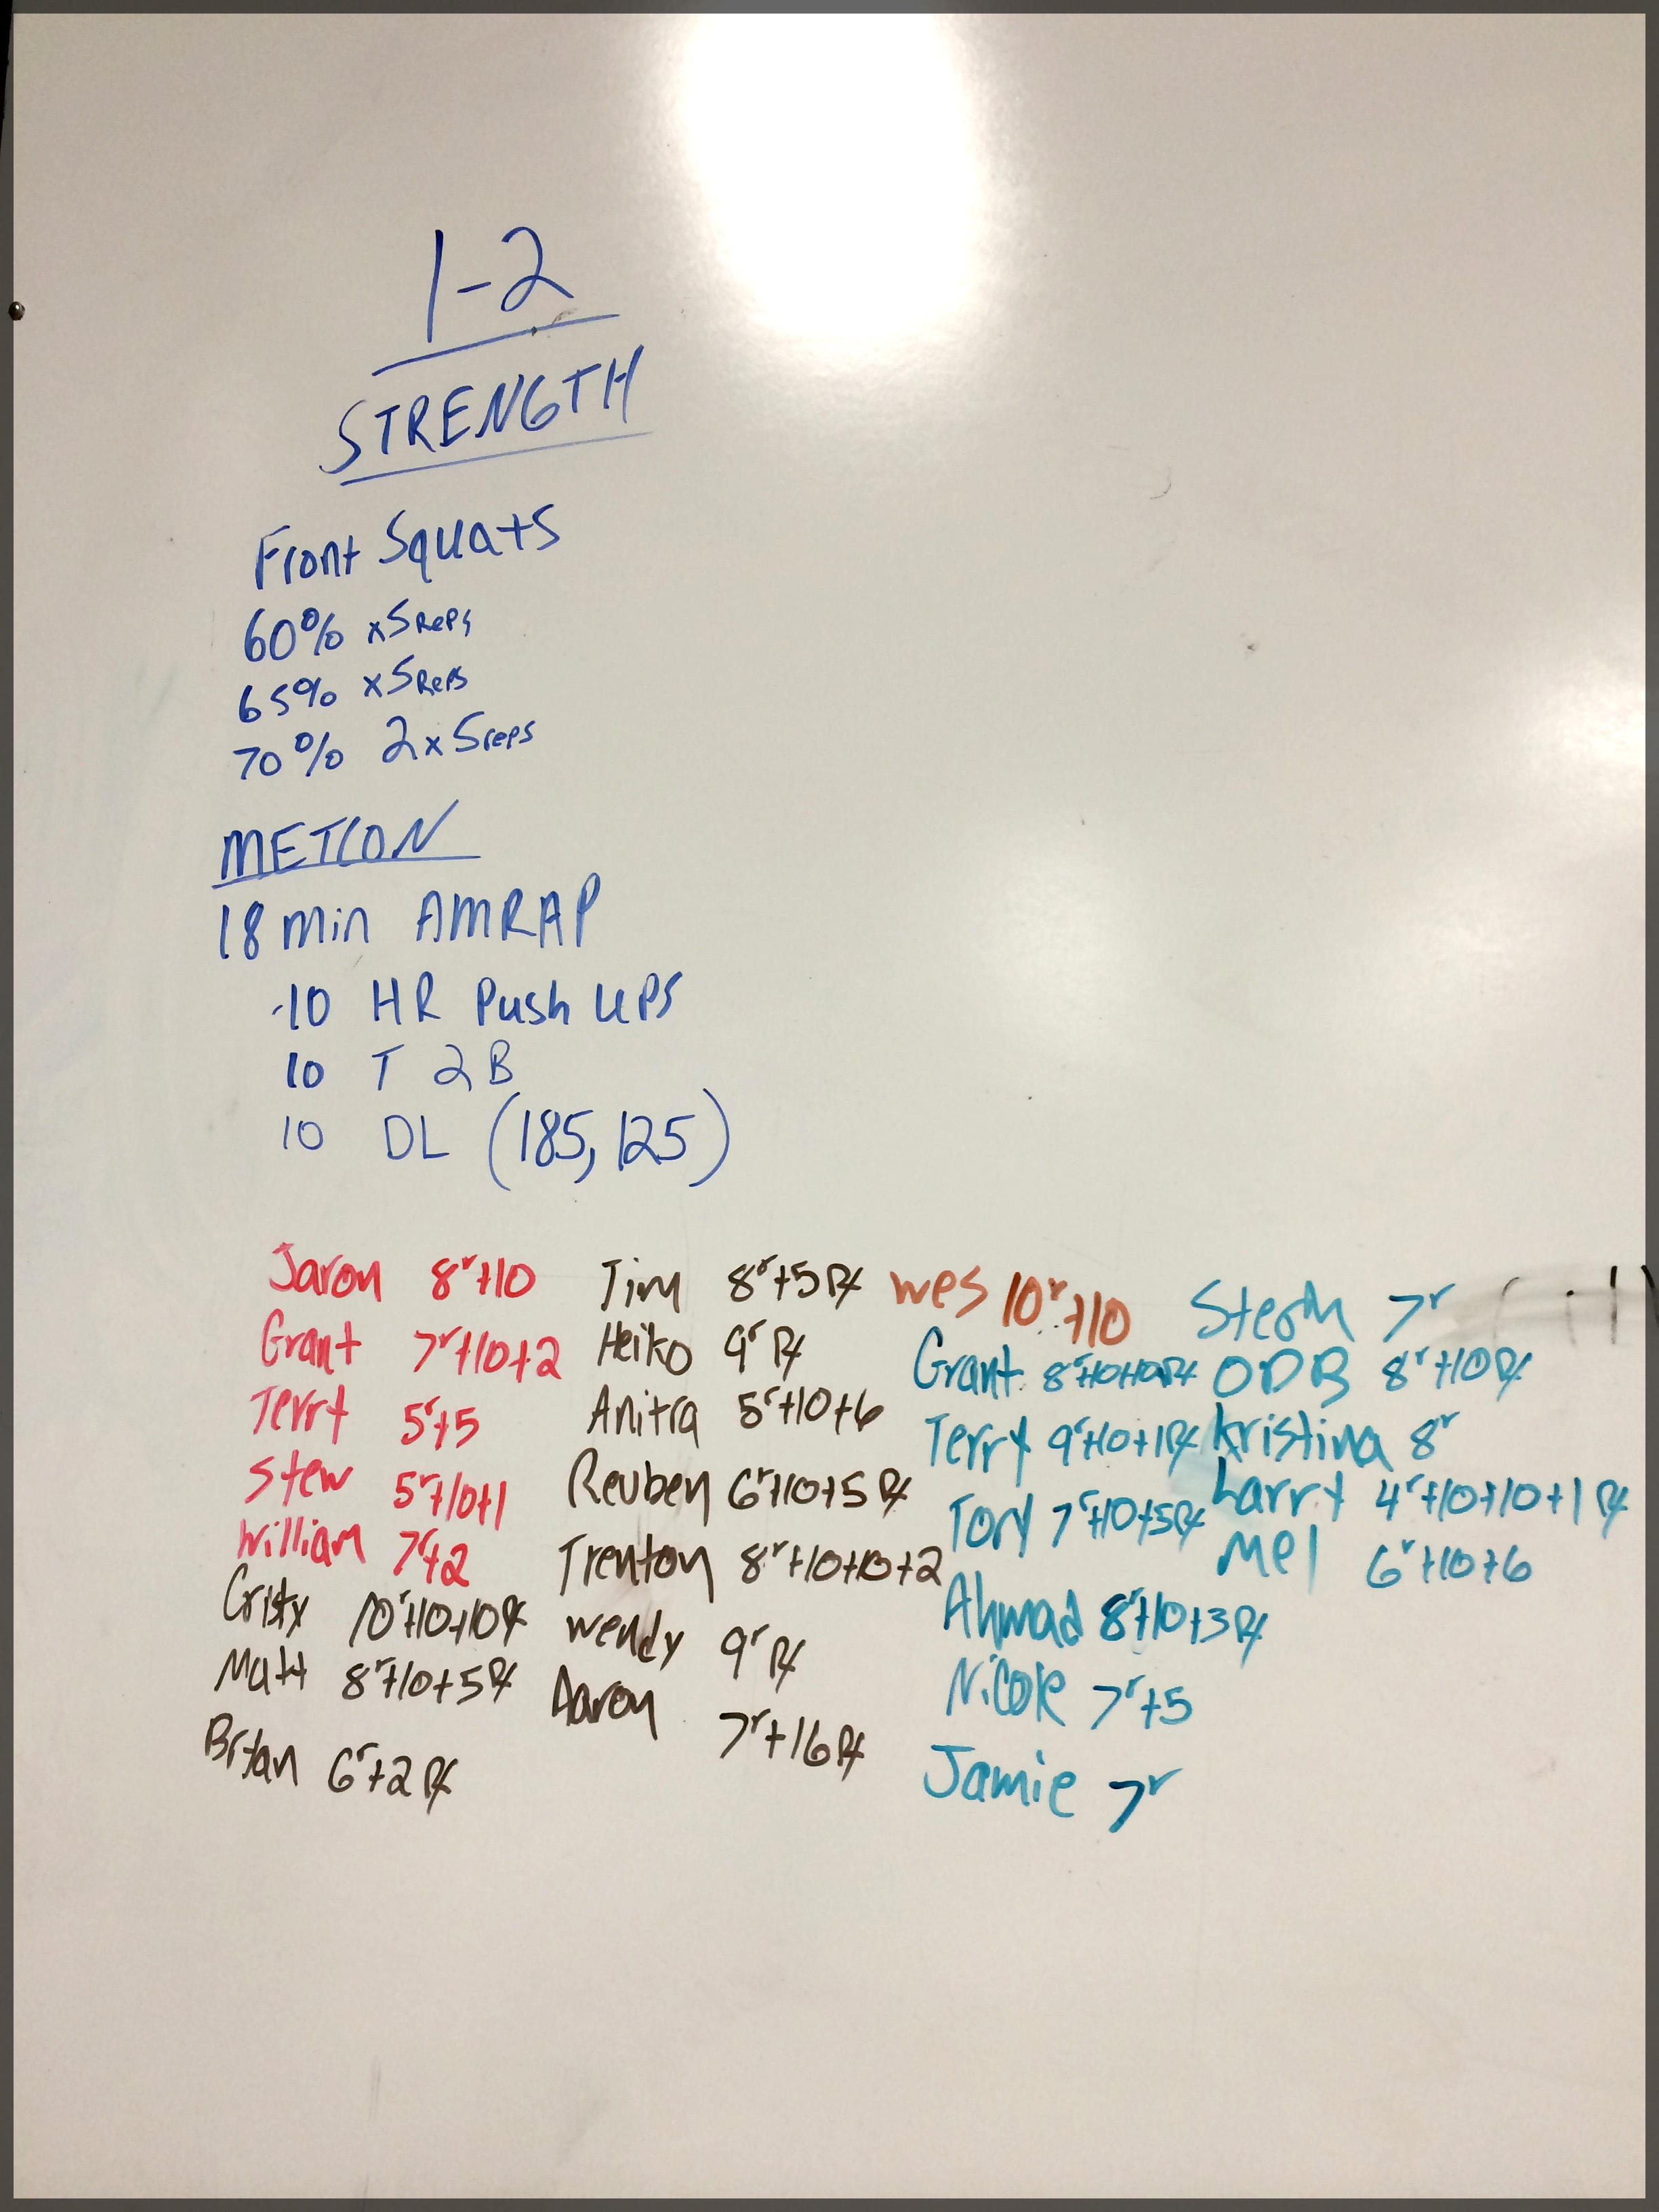 1-2
STRENGTH
Front Squats
60% x5 Reps
65% x5 Reps
70% 2x5 reps
METCON
18 min AMRAP
-10 HR Push UPS
10 T 2 B
10 DL (185, 125)
Jaron 8r+10
Grant 7r+10+2
Terry 5r+5
Stew 5r+10+1
William 7r+2
Cristy 10r+10+10 Rx
Matt 8r+10+5 Rx
Brian 6r+2 Rx
Tim 8r+5 Rx
Heiko 9r Rx
Anitra 5r+10+6
Reuben 6r+10+5 Rx
Trenton 8r+10+10+2
Wendy 9r Rx
Aaron 7r+16 Rx
Wes 10r+10
Grant 8r+10+10 Rx
Terry 9r+10+1 Rx
Tory 7r+10+5 Rx
Ahmad 8r+10+3 Rx
Nicole 7r+5
Jamie 7r
7r
ODB 8r+10 Rx
Kristina 8r
Larry 4r+10+10+1 Rx
Mel 6r+10+6